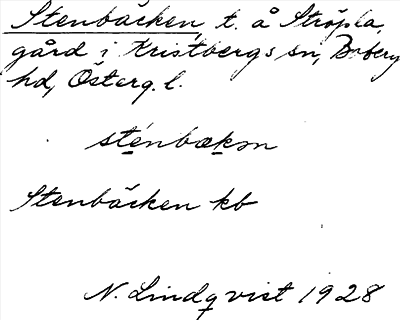 Stenbäcken, t. å Ströpla,
gård i Kristbergs sn, Boberg
hd, Österg. l.
stenbækən
Stenbäcken kb
N. Lindqvist 1928